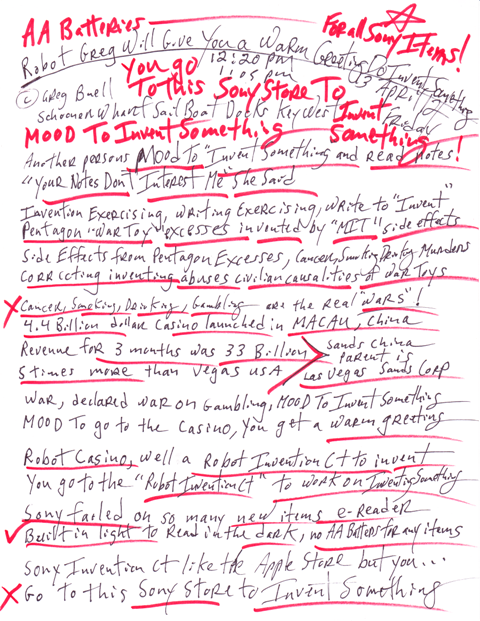 AA Batteries
For all Sony Items!
Robot Greg Will Give You a Warm Greeting To Invent Something
12:20 pm
1:05 pm
13 April
Friday
You go
To This Sony Store To
Invent
Something!
© Greg Buell
Schooner Wharf Sail Boat Docks Key West
MOOD To Invent Something
Another persons MOOD to "Invent Something and read notes
"Your Notes Don't Interest Me" She Said
Invention Exercising, Writing Exercising, write to "Invent"
Pentagon "War Toy" excesses invented by "MIT" side effects
Side Effects from Pentagon Excesses, Cancer, Smoking, Drinking, Murders
correcting inventing abuses civilian causalities of war Toys
X Cancer, Smoking, Drinking, Gambling are the real "WARS"!
4.4 Billion dollar Casino launched in MACAU, China
Revenue for 3 months was 33 Billion
5 times more than Vegas USA
Sands China
Parent is
Las Vegas Sands Corp
War, declared war on Gambling, MOOD To Invent Something
MOOD To go to the Casino, You get a warm greeting
Robot Casino, well a Robot Invention Ct to invent
You go to the "Robot Invention Ct" to work on Inventing Something
Sony failed on so many new items e-Reader
Built in light to Read in the dark, no AA Batterys for any items
Sony Invention Ct like the Apple Store but you...
X Go to this Sony Store to Invent Something